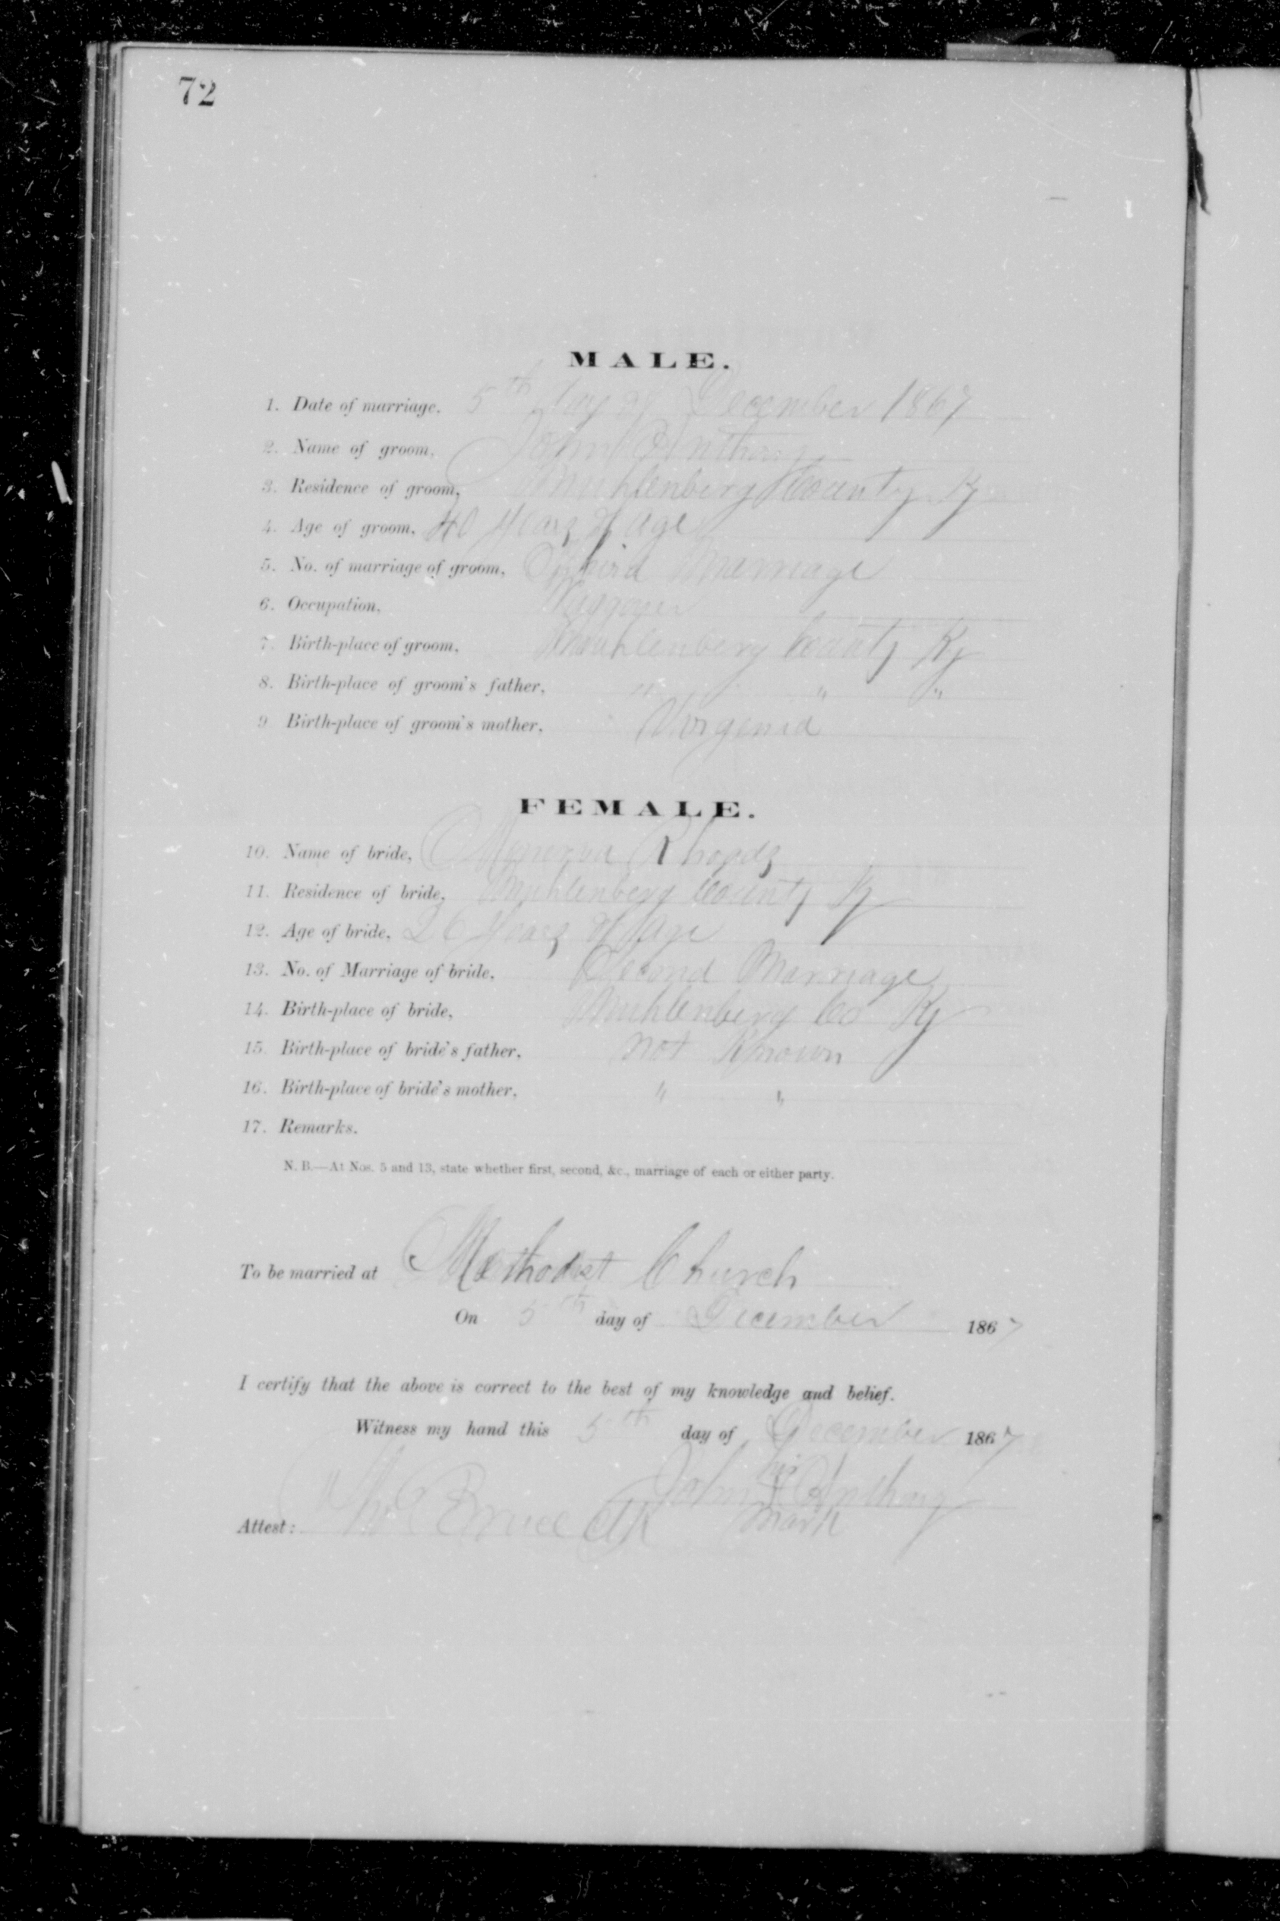 72
MALE.
1. Date of marriage, 5th day of December 1867
2. Name of groom, John Anthony
3. Residence of groom, Muhlenberg County Ky
4. Age of groom, 40 years of age
5. No. of marriage of groom, Third Marriage
6. Occupation,
7. Birth-place of groom, Muhlenberg County Ky
8. Birth-place of groom's father, " " "
9 Birth-place of groom's mother, Virginia
FEMALE.
10. Name of bride, Rhoads
11. Residence of bride, Muhlenberg County Ky
12. Age of bride, 26 years of age
13. No. of Marriage of bride, Second Marriage
14. Birth-place of bride, Muhlenberg Co Ky
15. Birth-place of bride's father, not Known
16. Birth-place of bride's mother, " "
17. Remarks.
N. B.—At Nos. 5 and 13, state whether first, second, &c., marriage of each or either party.
To be married at Methodist Church
On 5th day of December 1867
I certify that the above is correct to the best of my knowledge and belief.
Witness my hand this 5th day of December 1867
his
John X Anthony
mark
Attest: Bruce Clk